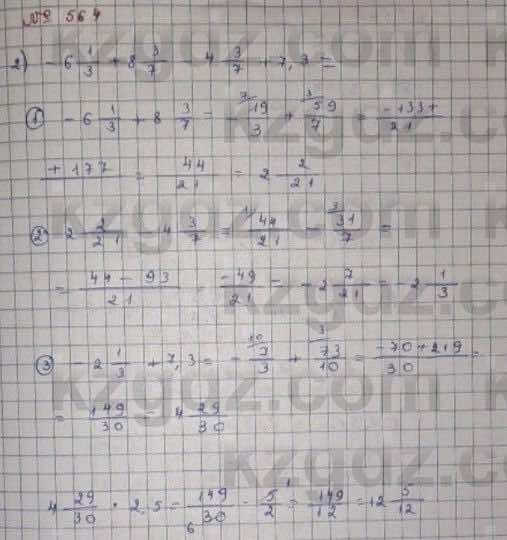 № 564
2) -6 1/3 + 8 3/7 - 4 3/7 + 7,3 =
① -6 1/3 + 8 3/7 = - 19/3 + 59/7 = -133+
+177 / 21 = 44/21 = 2 2/21
② 2 2/21 - 4 3/7 = 44/21 - 31/7 =
= 44 - 93 / 21 = -49/21 = -2 7/21 = -2 1/3
③ -2 1/3 + 7,3 = - 7/3 + 73/10 = -70+219 / 30 =
= 149/30 = 4 29/30
4 29/30 · 2,5 = 149/30 · 5/2 = 149/12 = 12 5/12
kzgdz.com